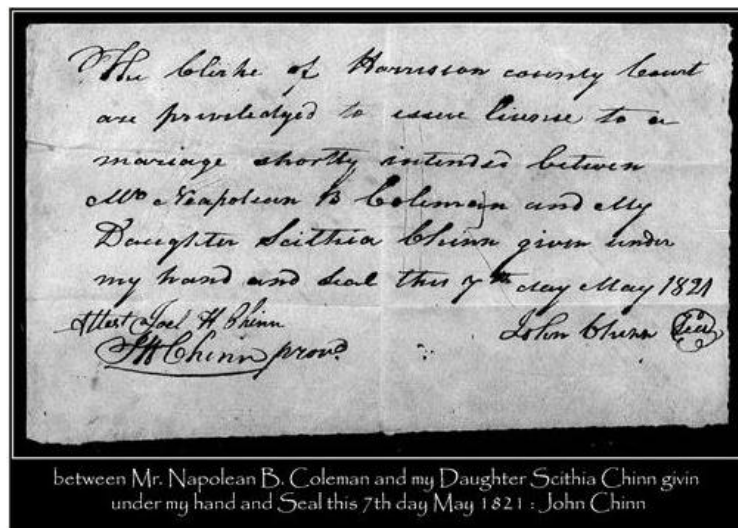 The Clirke of Harrison county Court
are priviledged to issue license to a
mariage shortly intended betwen
Mr Neapolean B Coleman and My
Daughter Scithia Chinn given under
my hand and seal this 7th day May 1821
Attest Joel H Chinn
John Chinn Seal
JH Chinn provd
between Mr. Napolean B. Coleman and my Daughter Scithia Chinn givin
under my hand and Seal this 7th day May 1821 : John Chinn